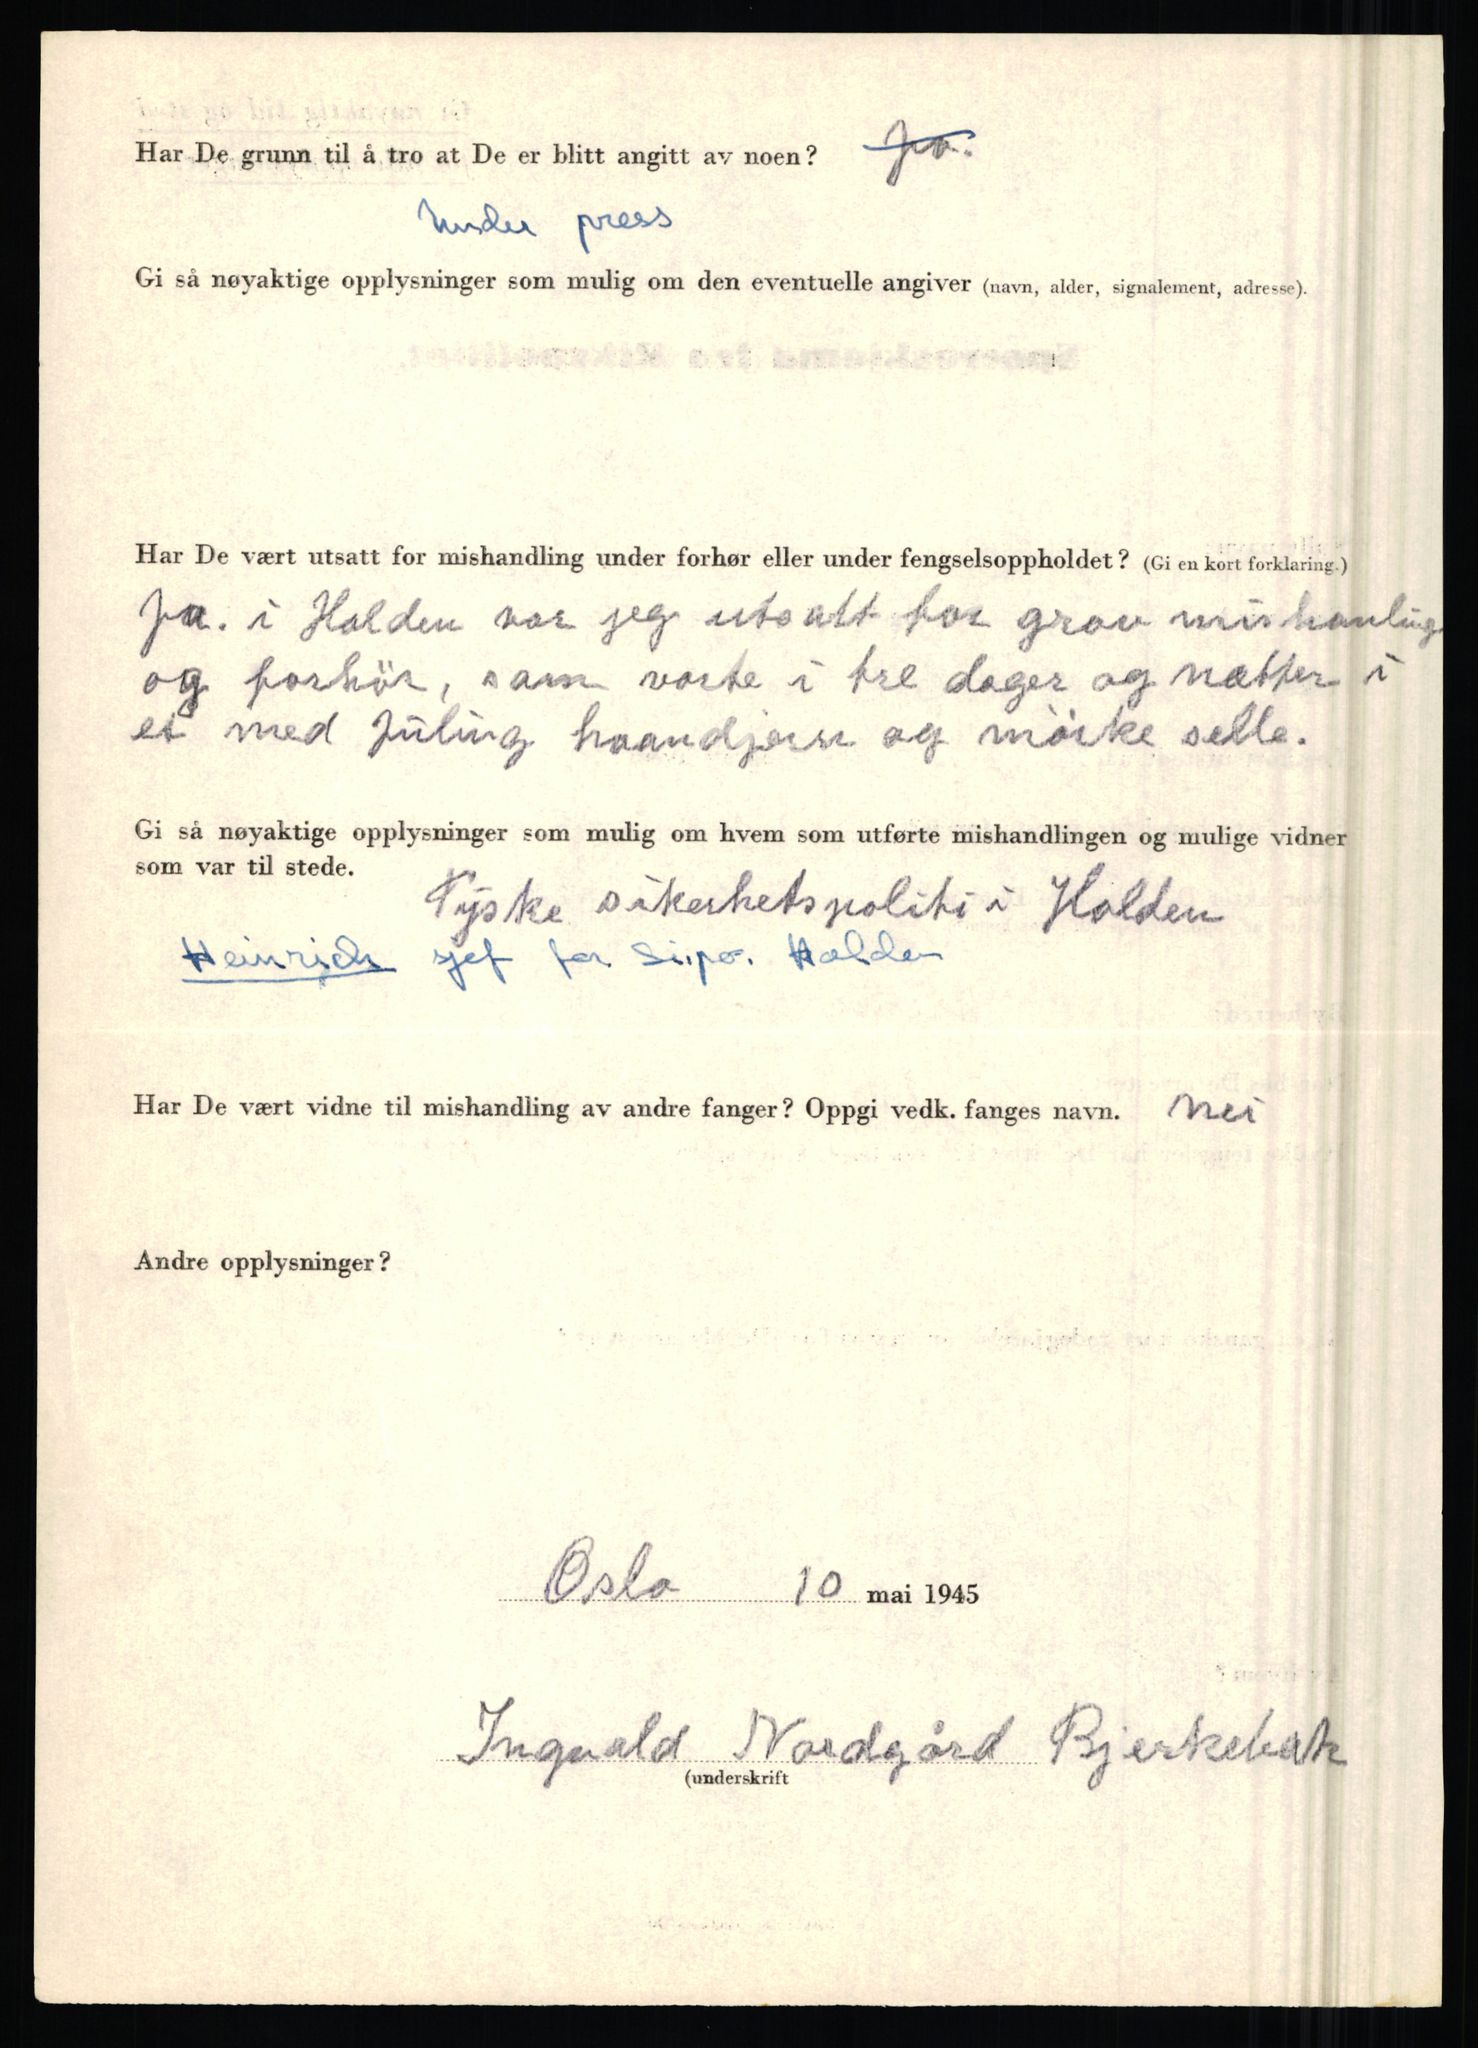 Har De grunn til å tro at De er blitt angitt av noen? Ja.
Under press
Gi så nøyaktige opplysninger som mulig om den eventuelle angiver (navn, alder, signalement, adresse).
Har De vært utsatt for mishandling under forhør eller under fengselsoppholdet? (Gi en kort forklaring.)
Ja. i Halden var jeg utsatt for grov mishanling
og forhör, som varte i tre dager og nætter i
et med Juling haandjern og mörke selle.
Gi så nøyaktige opplysninger som mulig om hvem som utførte mishandlingen og mulige vidner
som var til stede.
Tyske sikerhetspoliti i Halden
Heinrich sjef for Si.po. Halden
Har De vært vidne til mishandling av andre fanger? Oppgi vedk. fanges navn. nei
Andre opplysninger?
Oslo 10 mai 1945
Ingvald Nordgård Bjerkebæk
(underskrift